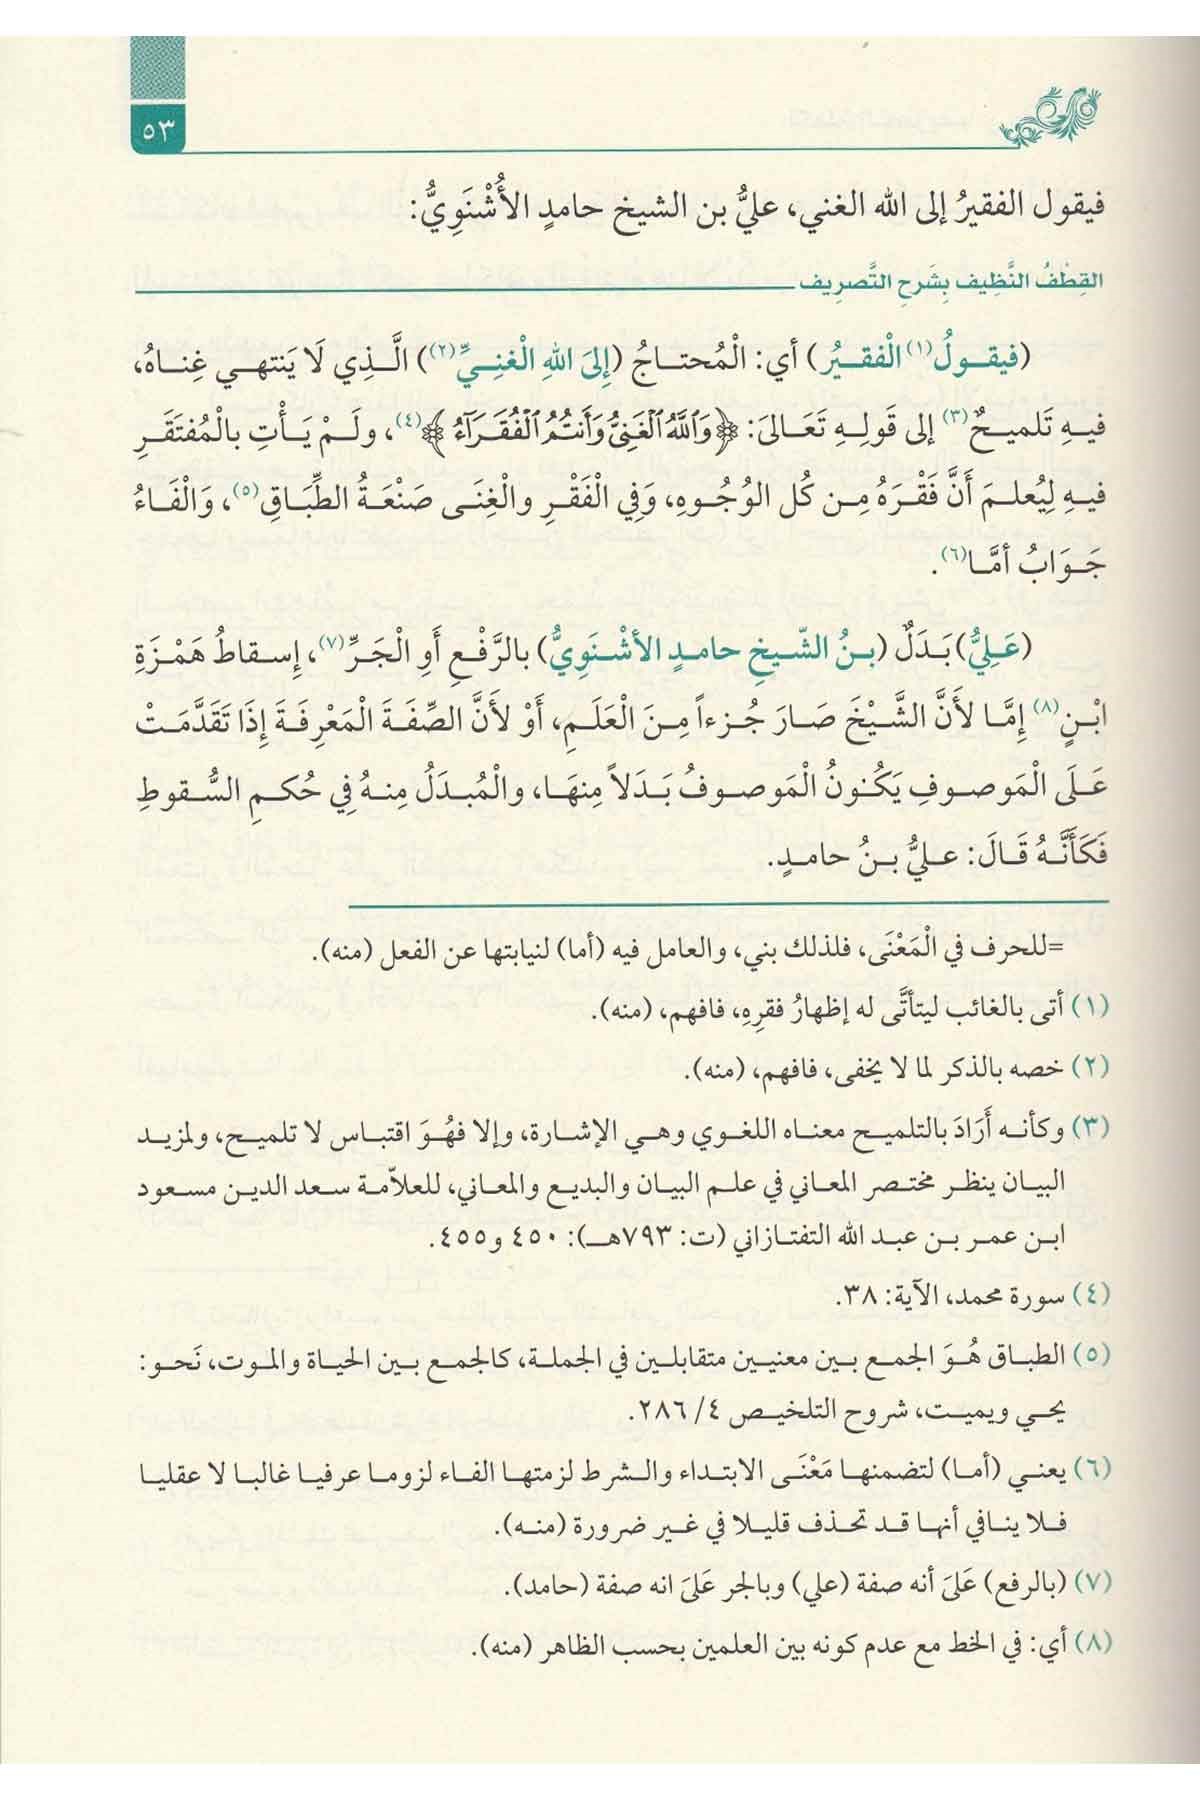 ٥٣
فيقول الفقيرُ إلى الله الغني، عليُّ بن الشيخ حامدٍ الأُشْنَوِيُّ:
القِطْفُ النَّظِيف بِشَرحِ التَّصرِيف
(فيقولُ(١) الْفقيرُ) أي: الْمُحتاجُ (إِلىَ اللهِ الْغنِيِّ(٢)) الَّذِي لَا يَنتهي غِناهُ،
فيهِ تَلميحٌ(٣) إلى قَولِهِ تَعَالىَ: ﴿وَٱللَّهُ ٱلْغَنِىُّ وَأَنتُمُ ٱلْفُقَرَآءُ﴾(٤)، ولَمْ يَأْتِ بالْمُفتَقَرِ
فيهِ لِيُعلمَ أَنَّ فَقْرَهُ مِن كُل الوُجُوهِ، وَفِي الْفَقْرِ والْغِنَى صَنْعَةُ الطِّبَاقِ(٥)، وَالْفَاءُ
جَوَابُ أمَّا(٦).
(عَلِيُّ) بَدَلٌ (بنُ الشّيخِ حامدٍ الأشْنَوِيُّ) بالرَّفْعِ أَوِ الْجَرِّ(٧)، إِسقاطُ هَمْزَةِ
ابْنٍ(٨) إِمَّا لأَنَّ الشَّيْخَ صَارَ جُزءاً مِنَ الْعَلَمِ، أَوْ لأَنَّ الصِّفَةَ الْمَعْرِفَةَ إِذَا تَقَدَّمَتْ
عَلَى الْمَوصوفِ يَكُونُ الْمَوصوفُ بَدَلاً مِنهَا، والْمُبدَلُ مِنهُ فِي حُكمِ السُّقوطِ
فَكَأَنَّهُ قَالَ: عليُّ بنُ حامدٍ.
=للحرف في الْمَعْنَى، فلذلك بني، والعامل فيه (أما) لنيابتها عن الفعل (منه).
(١) أتى بالغائب ليتأتَّى له إظهارُ فقرِهِ، فافهم، (منه).
(٢) خصه بالذكر لما لا يخفى، فافهم، (منه).
(٣) وكأنه أَرَادَ بالتلميح معناه اللغوي وهي الإشارة، وإلا فهُوَ اقتباس لا تلميح، ولمزيد
البيان ينظر مختصر المعاني في علم البيان والبديع والمعاني، للعلاّمة سعد الدين مسعود
ابن عمر بن عبد الله التفتازاني (ت: ٧٩٣هـ): ٤٥٠ و٤٥٥.
(٤) سورة محمد، الآية: ٣٨.
(٥) الطباق هُوَ الجمع بين معنيين متقابلين في الجملة، كالجمع بين الحياة والموت، نَحو:
يحي ويميت، شروح التلخيص ٤/ ٢٨٦.
(٦) يعني (أما) لتضمنها مَعْنَى الابتداء والشرط لزمتها الفاء لزوما عرفيا غالبا لا عقليا
فلا ينافي أنها قد تحذف قليلا في غير ضرورة (منه).
(٧) (بالرفع) عَلىَ أنه صفة (علي) وبالجر عَلىَ انه صفة (حامد).
(٨) أي: في الخط مع عدم كونه بين العلمين بحسب الظاهر (منه).